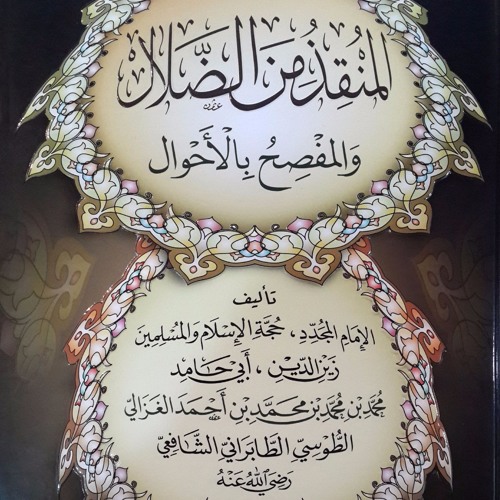 المُنْقِذُ مِنَ الضَّلَالِ
وَالمُفْصِحُ بِالْأَحْوَالِ
تأليف
الإِمَامِ المُجَدِّدِ، حُجَّةِ الإِسْلَامِ وَالمُسْلِمِينَ
زَيْنِ الدِّينِ، أَبِي حَامِدٍ
مُحَمَّدِ بْنِ مُحَمَّدِ بْنِ مُحَمَّدِ بْنِ أَحْمَدَ الغَزَالِيِّ
الطُّوسِيِّ الطَّابَرَانِيِّ الشَّافِعِيِّ
رَضِيَ اللهُ عَنْهُ